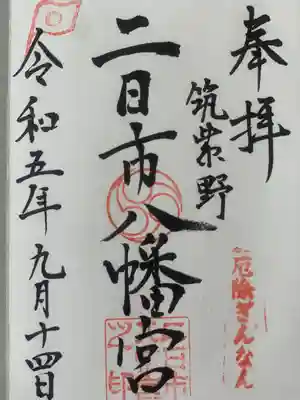 奉拝
筑紫野
二日市八幡宮
令和五年九月十四日
厄除ぎんなん